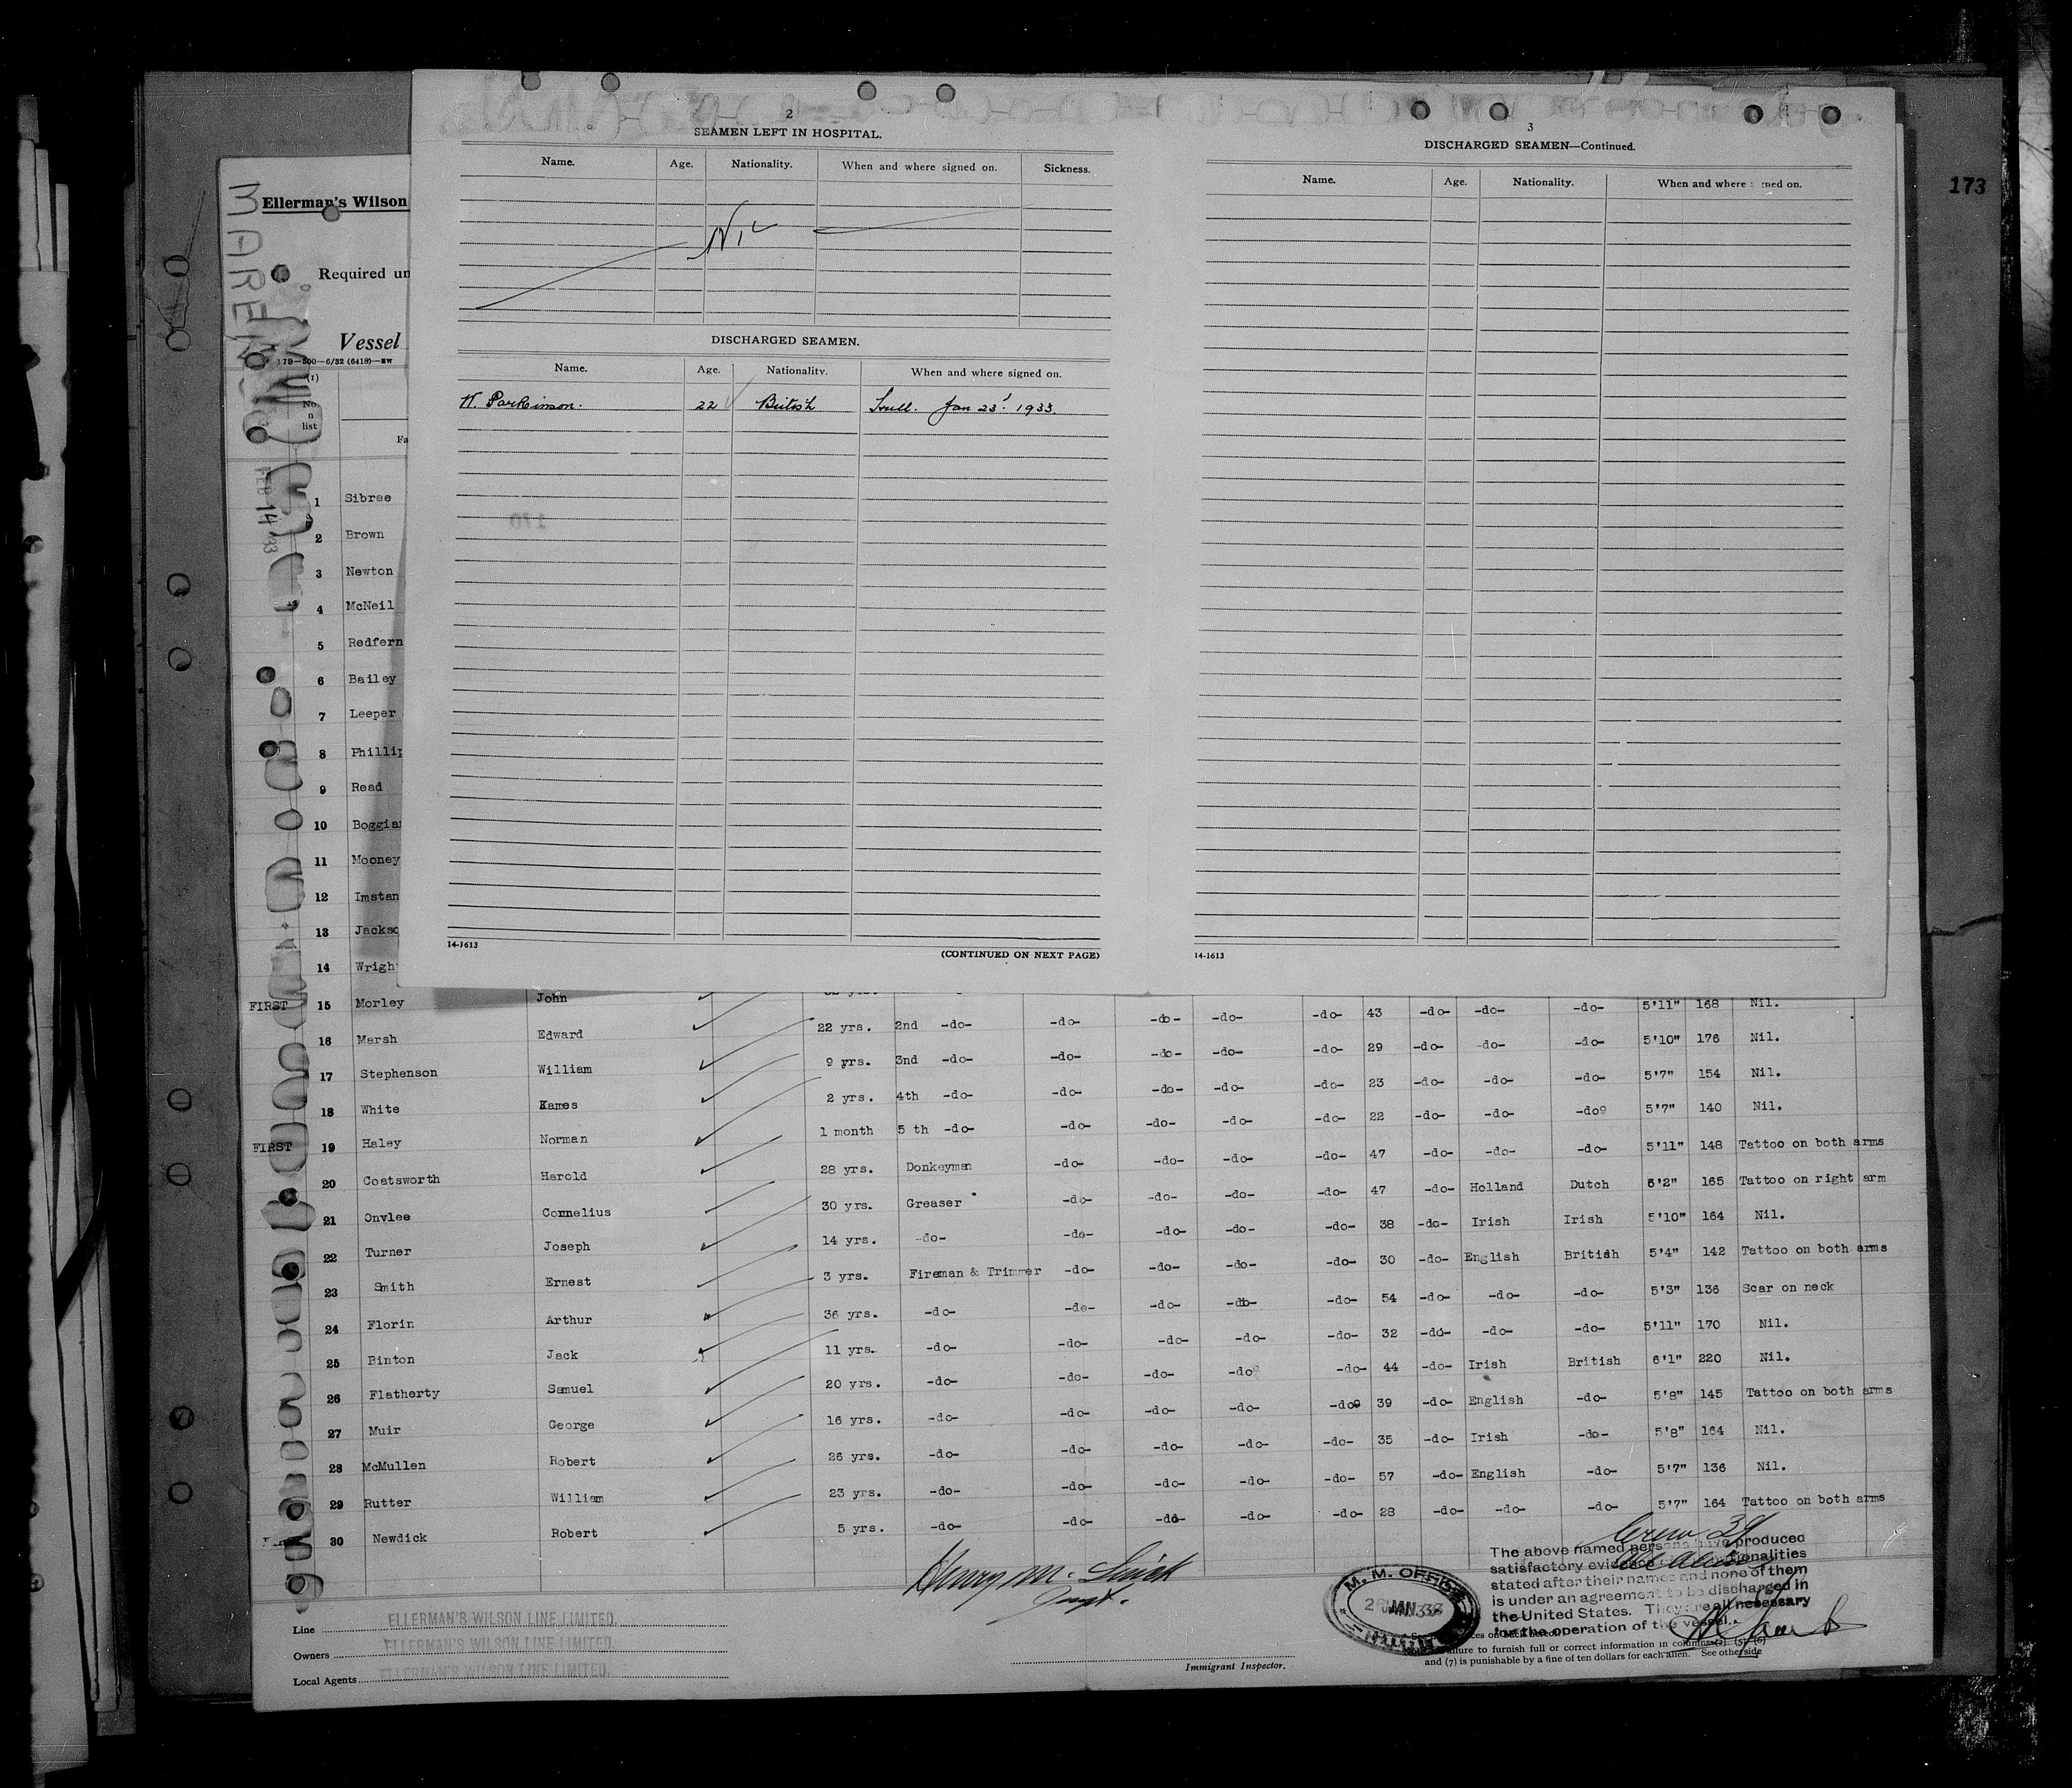 173
2
SEAMEN LEFT IN HOSPITAL.
Name. Age. Nationality. When and where signed on. Sickness.
Nil
DISCHARGED SEAMEN.
Name. Age. Nationality. When and where signed on.
Parkinson. 22 British Hull. Jan 23rd 1933.
170
14-1613
(CONTINUED ON NEXT PAGE)
3
DISCHARGED SEAMEN—Continued.
Name. Age. Nationality. When and where signed on.
14-1613
MARENGO
FEB 14 33
Ellerman's Wilson
Required un
Vessel
17B—500—6/32 (6418)—EW
(1)
No.
n
list
Fa
1 Sibree
2 Brown
3 Newton
4 McNeil
5 Redfern
6 Bailey
7 Leeper
8 Phillip
9 Read
10 Boggia
11 Mooney
12 Imstan
13 Jackso
14 Wrigh
FIRST 15 Morley John
16 Marsh Edward 22 yrs. 2nd -do- -do- -do- -do- -do- 43 -do- -do- -do- 5'11" 168 Nil.
17 Stephenson William 9 yrs. 3nd -do- -do- -do- -do- -do- 29 -do- -do- -do- 5'10" 176 Nil.
18 White Kames 2 yrs. 4th -do- -do- -do- -do- -do- 23 -do- -do- -do- 5'7" 154 Nil.
FIRST 19 Haley Norman 1 month 5 th -do- -do- -do- -do- -do- 22 -do- -do- -do9 5'7" 140 Nil.
20 Coatsworth Harold 28 yrs. Donkeyman -do- -do- -do- -do- 47 -do- -do- -do- 5'11" 148 Tattoo on both arms
21 Onvlee Cornelius 30 yrs. Greaser -do- -do- -do- -do- 47 -do- Holland Dutch 5'2" 165 Tattoo on right arm
22 Turner Joseph 14 yrs. -do- -do- -do- -do- -do- 38 -do- Irish Irish 5'10" 164 Nil.
23 Smith Ernest 3 yrs. Fireman & Trimmer -do- -do- -do- -do- 30 -do- English British 5'4" 142 Tattoo on both arms
24 Florin Arthur 36 yrs. -do- -de- -do- -do- -do- 54 -do- -do- -do- 5'3" 136 Scar on neck
25 Binton Jack 11 yrs. -do- -do- -do- -do- -do- 32 -do- -do- -do- 5'11" 170 Nil.
26 Flatherty Samuel 20 yrs. -do- -do- -do- -do9 -do- 44 -do- Irish British 6'1" 220 Nil.
27 Muir George 16 yrs. -do- -do- -do- -do- -do9 39 -do- English -do- 5'8" 145 Tattoo on both arms
28 McMullen Robert 26 yrs. -do- -do- -do- -do- -do- 35 -do- Irish -do- 5'8" 164 Nil.
29 Rutter William 23 yrs. -do- -do- -do- -do- -do- 57 -do- English -do- 5'7" 136 Nil.
30 Newdick Robert 5 yrs. -do- -do- -do- -do- -do- 28 -do- -do- -do- 5'7" 164 Tattoo on both arms
Crew 39
The above named persons have produced
satisfactory evidence nationalities
stated after their names and none of them
is under an agreement to be discharged in
the United States. They are all necessary
for the operation of the vessel.
M. M. OFFICE
JAN 33
Line ELLERMAN'S WILSON LINE LIMITED.
Owners ELLERMAN'S WILSON LINE LIMITED.
Local Agents ELLERMAN'S WILSON LINE LIMITED.
Immigrant Inspector.
failure to furnish full or correct information in columns (2) (5) (6)
and (7) is punishable by a fine of ten dollars for each alien. See other side